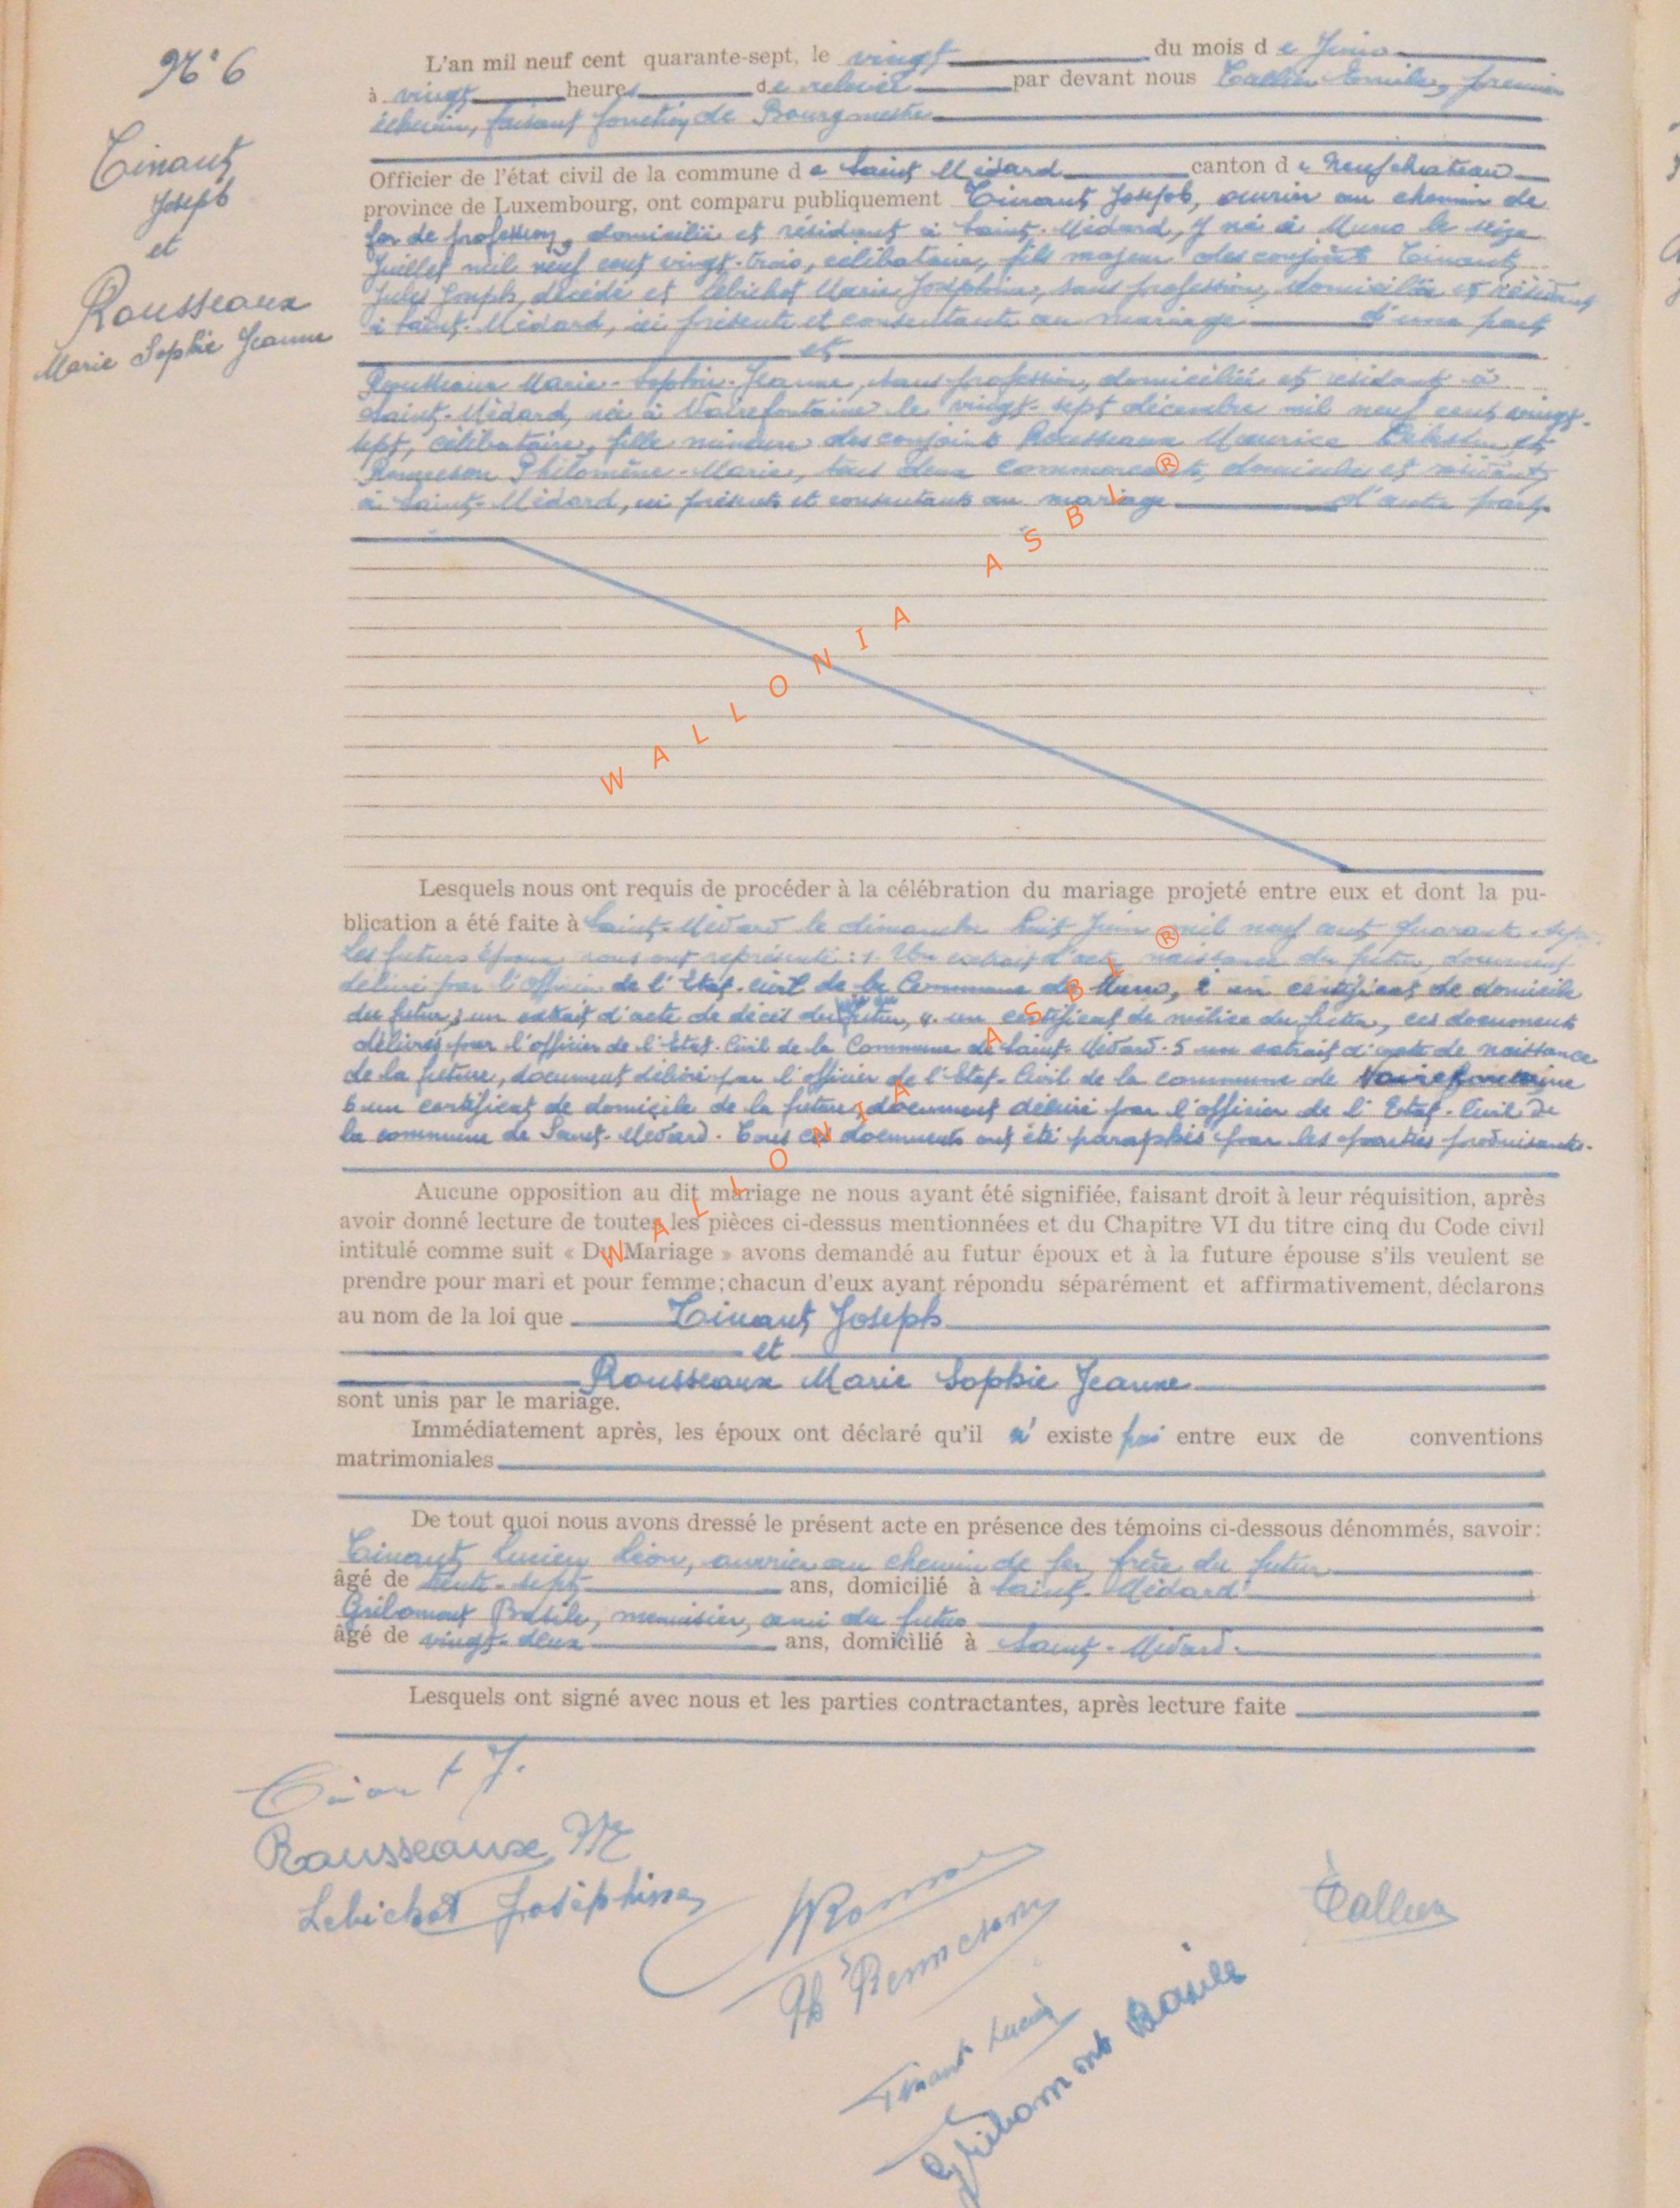 N° 6
Tinant
Joseph
et
Rousseaux
Marie Sophie Jeanne
L'an mil neuf cent quarante-sept, le vingt du mois de Juin
à vingt heures de relevée par devant nous Tallier Emile, premier
échevin, faisant fonction de Bourgmestre
Officier de l'état civil de la commune de Saint Médard canton de Neufchateau
province de Luxembourg, ont comparu publiquement Tinant Joseph, ouvrier au chemin de
fer de profession, domicilié et résidant à Saint-Médard, y né à Muno le seize
Juillet mil neuf cent vingt-trois, célibataire, fils majeur des conjoints Tinant
Jules Joseph, décédé et Lebichot Marie Joséphine, sans profession, domiciliée et résidant
à Saint-Médard, ici présente et consentante au mariage d'une part
et
Rousseaux Marie-Sophie-Jeanne, sans profession, domiciliée et résidant à
Saint-Médard, née à Noirefontaine le vingt-sept décembre mil neuf cent vingt-
sept, célibataire, fille mineure des conjoints Rousseaux Maurice Célestin et
Renneson Philomène-Marie, tous deux commerçants, domiciliés et résidant
à Saint-Médard, ici présents et consentants au mariage d'autre part.
WALLONIA ASBL ®
Lesquels nous ont requis de procéder à la célébration du mariage projeté entre eux et dont la pu-
blication a été faite à Saint-Médard le dimanche huit Juin mil neuf cent quarante-sept
Les futurs époux nous ont représenté : 1. Un extrait d'acte naissance du futur, document
délivré par l'officier de l'Etat-civil de la Commune de Muno, 2 un certificat de domicile
du futur, 3 un extrait d'acte de décès du futur, 4. un certificat de milice du futur, ces documents
délivrés par l'officier de l'Etat-Civil de la Commune de Saint-Médard. 5 un extrait d'acte de naissance
de la future, document délivré par l'officier de l'Etat-Civil de la commune de Noirefontaine
6 un certificat de domicile de la future, document délivré par l'officier de l'Etat-Civil de
la commune de Saint-Médard. Tous ces documents ont été paraphés par les parties produisantes.
WALLONIA ASBL ®
Aucune opposition au dit mariage ne nous ayant été signifiée, faisant droit à leur réquisition, après
avoir donné lecture de toutes les pièces ci-dessus mentionnées et du Chapitre VI du titre cinq du Code civil
intitulé comme suit « Du Mariage » avons demandé au futur époux et à la future épouse s'ils veulent se
prendre pour mari et pour femme; chacun d'eux ayant répondu séparément et affirmativement, déclarons
au nom de la loi que Tinant Joseph
et
Rousseaux Marie Sophie Jeanne
sont unis par le mariage.
Immédiatement après, les époux ont déclaré qu'il n' existe pas entre eux de conventions
matrimoniales
De tout quoi nous avons dressé le présent acte en présence des témoins ci-dessous dénommés, savoir:
Tinant Lucien Léon, ouvrier au chemin de fer, frère du futur
âgé de trente-sept ans, domicilié à Saint-Médard
Gribomont Basile, menuisier, ami du futur
âgé de vingt-deux ans, domicilié à Saint-Médard.
Lesquels ont signé avec nous et les parties contractantes, après lecture faite
Tinant J.
Rousseaux M
Lebichot Joséphine
Ph Renneson
Tallier
Tinant Lucien
Gribomont Basile